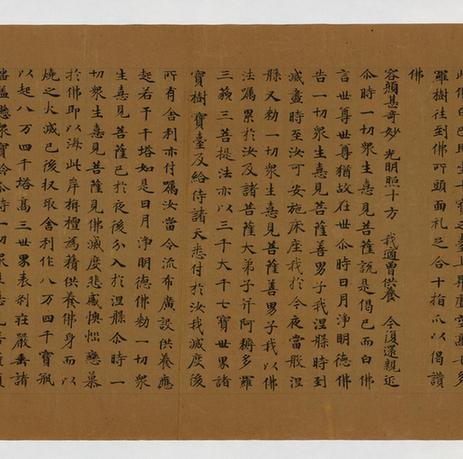 此佛白已即坐七寶之臺上昇虛空高七多
羅樹往到佛所頭面礼足合十指爪以偈讚
佛
容顏甚奇妙 光明照十方 我適曾供養 今復還親近
尒時一切衆生憙見菩薩說是偈已而白佛
言世尊世尊猶故在世尒時日月淨明德佛
告一切衆生憙見菩薩善男子我涅槃時到
滅盡時至汝可安施床座我於今夜當般涅
槃又勑一切衆生憙見菩薩善男子我以佛
法属累於汝及諸菩薩大弟子并阿耨多羅
三藐三菩提法亦以三千大千七寶世界諸
寶樹寶臺及給侍諸天悉付於汝我滅度後
所有舍利亦付属汝當令流布廣設供養應
起若干千塔如是日月淨明德佛勑一切衆
生憙見菩薩已於夜後分入於涅槃尒時一
切衆生憙見菩薩見佛滅度悲感懊惱戀慕
於佛即以海此岸栴檀為𧂐供養佛身而以
燒之火滅已後收取舍利作八万四千寶瓶
以起八万四千塔高三世界表剎莊嚴垂諸
幡蓋懸衆寶鈴尒時一切衆生憙見菩薩